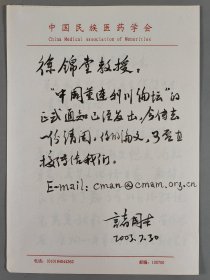 中国民族医药学会
China Medical association of Menorities
徐锦堂教授：
“中国黄连利川论坛”的
正式通知已经发出，今传去
一份请阅。你的论文，可否直
接传给我们。
E-mail: cman@cmam.org.cn
2003.7.30
电话：
邮编：100700